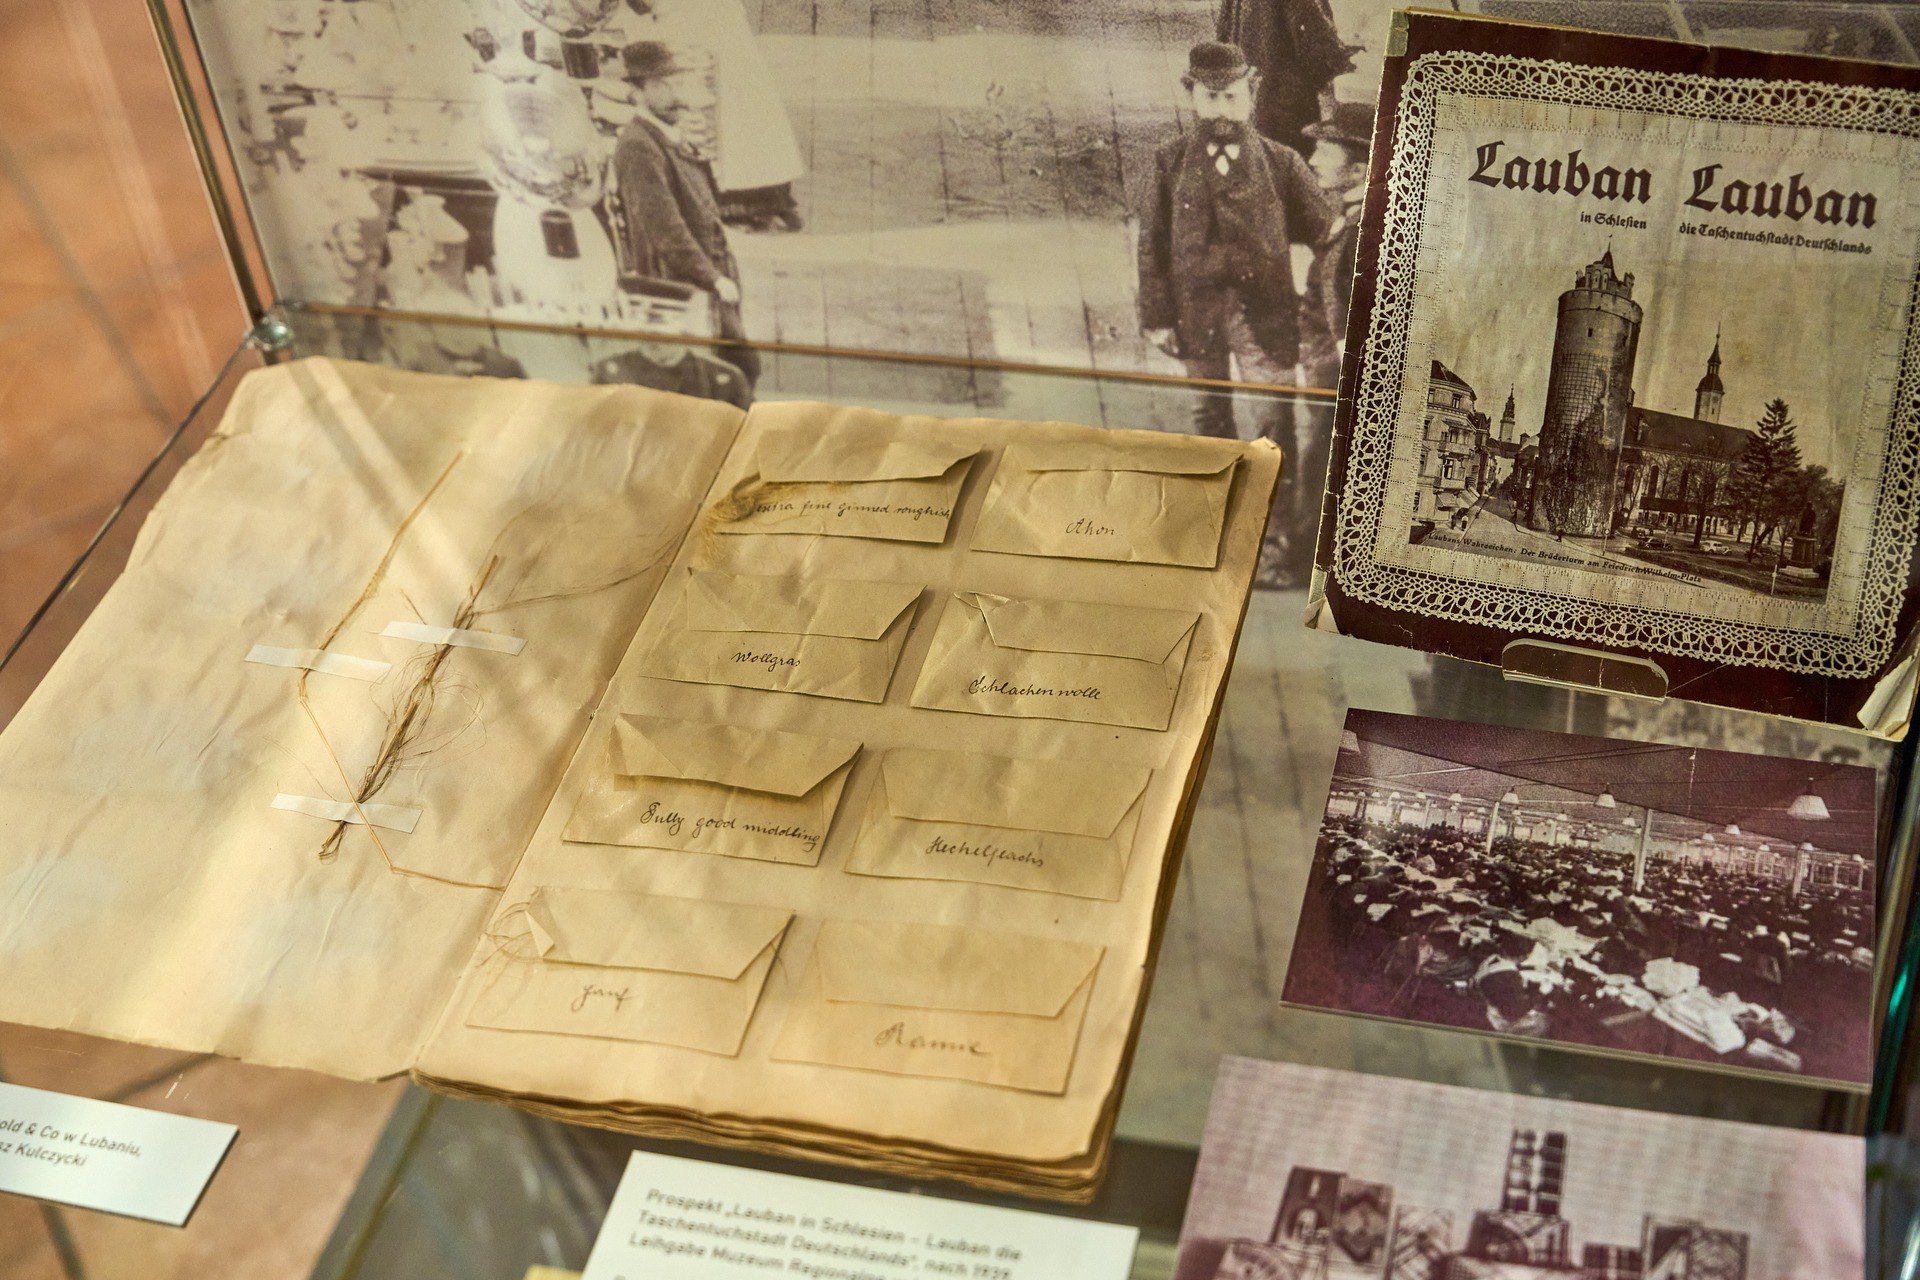 Lauban Lauban
in Schlesien die Taschentuchstadt Deutschlands
Laubans Wahrzeichen: Der Brüderturm am Friedrich-Wilhelm-Platz
extra fine ginned roughish
Ahon
Wollgras
Schlackenwolle
Fully good middling
Hechelflachs
Hanf
Ramie
old & Co w Lubaniu,
sz Kulczycki
Prospekt „Lauban in Schlesien – Lauban die
Taschentuchstadt Deutschlands“, nach 1939
Leihgabe Muzeum Regionalne